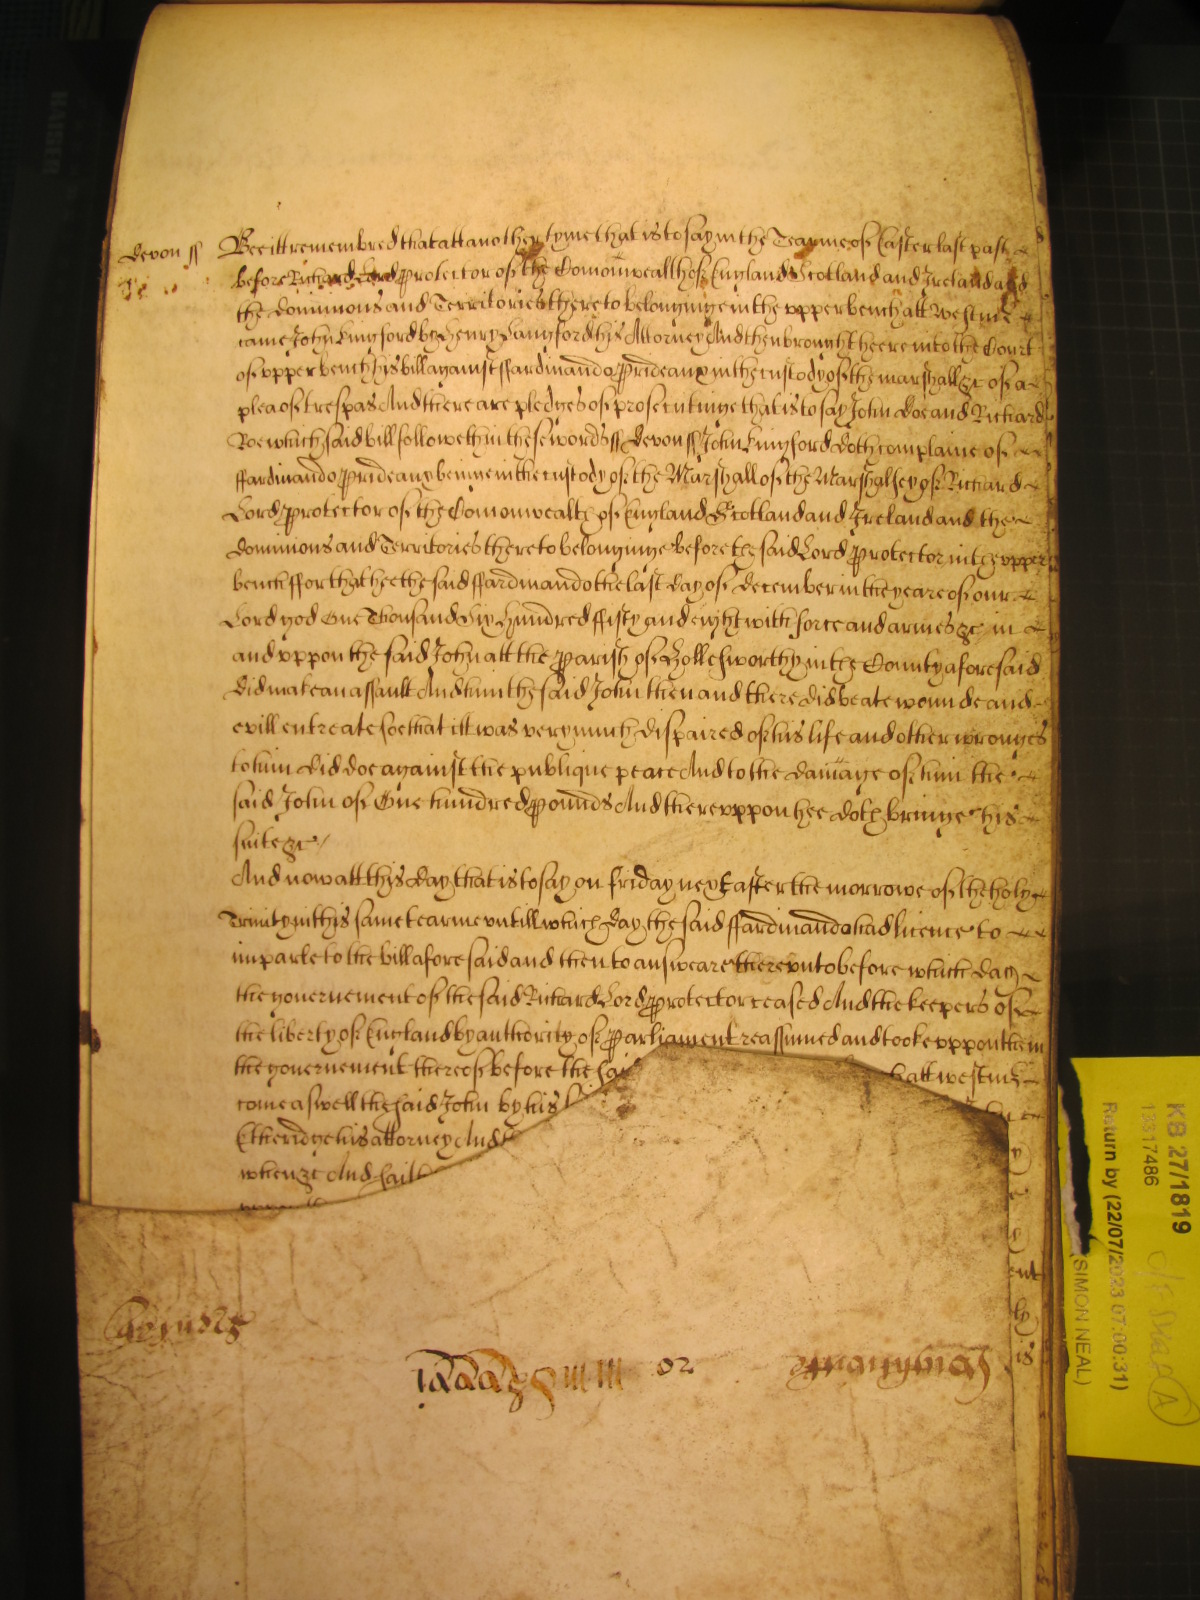 devon ss Bee itt remembred that att another tyme that is to say in the Tearme of Easter last past
before Richard Lord Protector of the Comonwealth of England Scotland and Ireland and
the dominions and Territories thereto belonginge in the upper bench att Westmr
came John Lingford by Henry Langford his Attorney And then brought heere into the Court
of upper bench his bill against ffardinando Prideaux in the custody of the marshall &c of a
plea of trespas And there are pledges of prosecutinge that is to say John Doe and Richard
Roe which said bill followeth in these words ss Devon ss John Lingford doth complaine of
ffardinando Prideaux beinge in the custody of the Marshall of the Marshalsey of Richard
Lord Protector of the Comonwealth of England Scotland and Ireland and the
dominions and Territories thereto belonginge before the said Lord Protector in the upper
bench ffor that hee the said ffardinando the last day of December in the yeare of our
Lord god One Thousand Six hundred ffifty and eight with force and armes &c in
and uppon the said John att the Parish of Hollesworthy in the County aforesaid
did make an assault And him the said John then and there did beate wounde and
evill entreate soe that itt was very much dispaired of his life and other wronges
to him did doe against the publique peace And to the damage of him the
said John of One hundred Pounds And thereuppon hee doth bringe his
suite &c
And now att this day that is to say on Friday next after the morrowe of the holy
Trinity in this same tearme untill which day the said ffardinando had licence to
imparle to the bill aforesaid and then to answeare thereunto before which day
the government of the said Richard Lord Protector ceased And the keepers of
the liberty of England by authority of Parliament reassumed and tooke uppon them
the government thereof before the said h att Westmr
come aswell the said John by his
Etheridge his attorney And
when &c And saith
KB 27/1819
13317486
Return by (22/07/2023 07:00:31)
(SIMON NEAL)
A